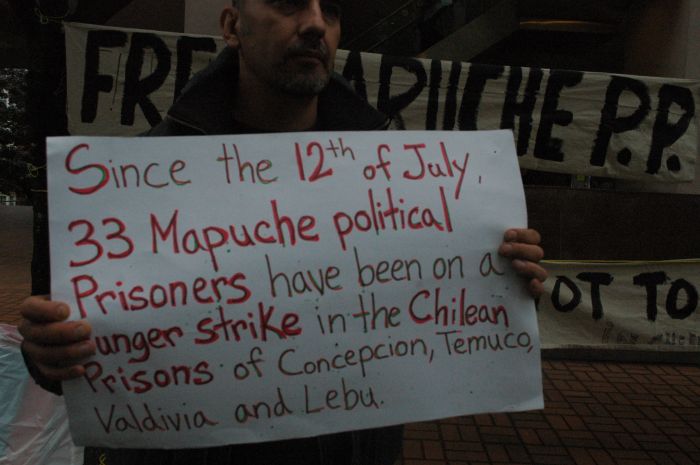 FRE MAPUCHE P.P.
Since the 12th of July,
33 Mapuche political
Prisoners have been on a
unger strike in the Chilean
Prisons of Concepcion, Temuco,
Valdivia and Lebu.
OT TO